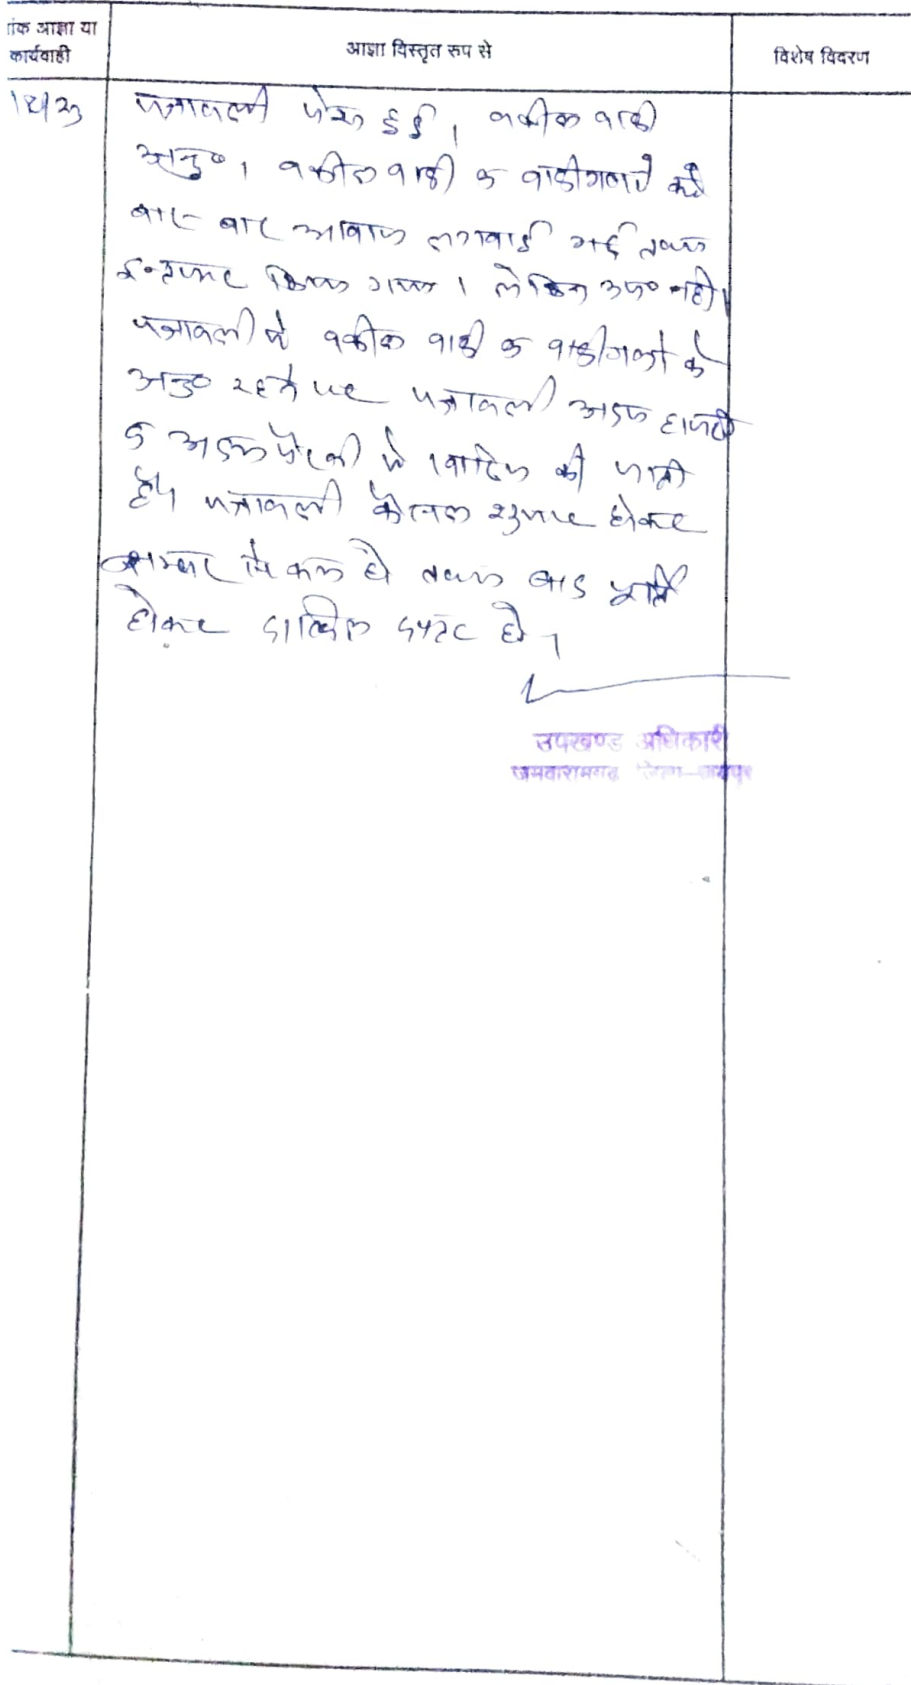 ांक आज्ञा या
कार्यवाही
आज्ञा विस्तृत रूप से
विशेष विवरण
पत्रावली पेश हुई। वकील वादी
अनु०। वकील वादी व वादीगणों को
बार-बार आवाज लगवाई गई तथा
इन्तजार किया गया। लेकिन उप० नहीं।
पत्रावली में वकील वादी व वादीगणों के
अनु० रहने पर पत्रावली अदम हाजरी
व अदम पैरवी में खारिज की जाती
है। पत्रावली फैसल शुमार होकर
नम्बर से कम हो तथा बाद पूर्ति
होकर दाखिल दफ्तर हो।
उपखण्ड अधिकारी
जमवारामगढ जिला-जयपुर